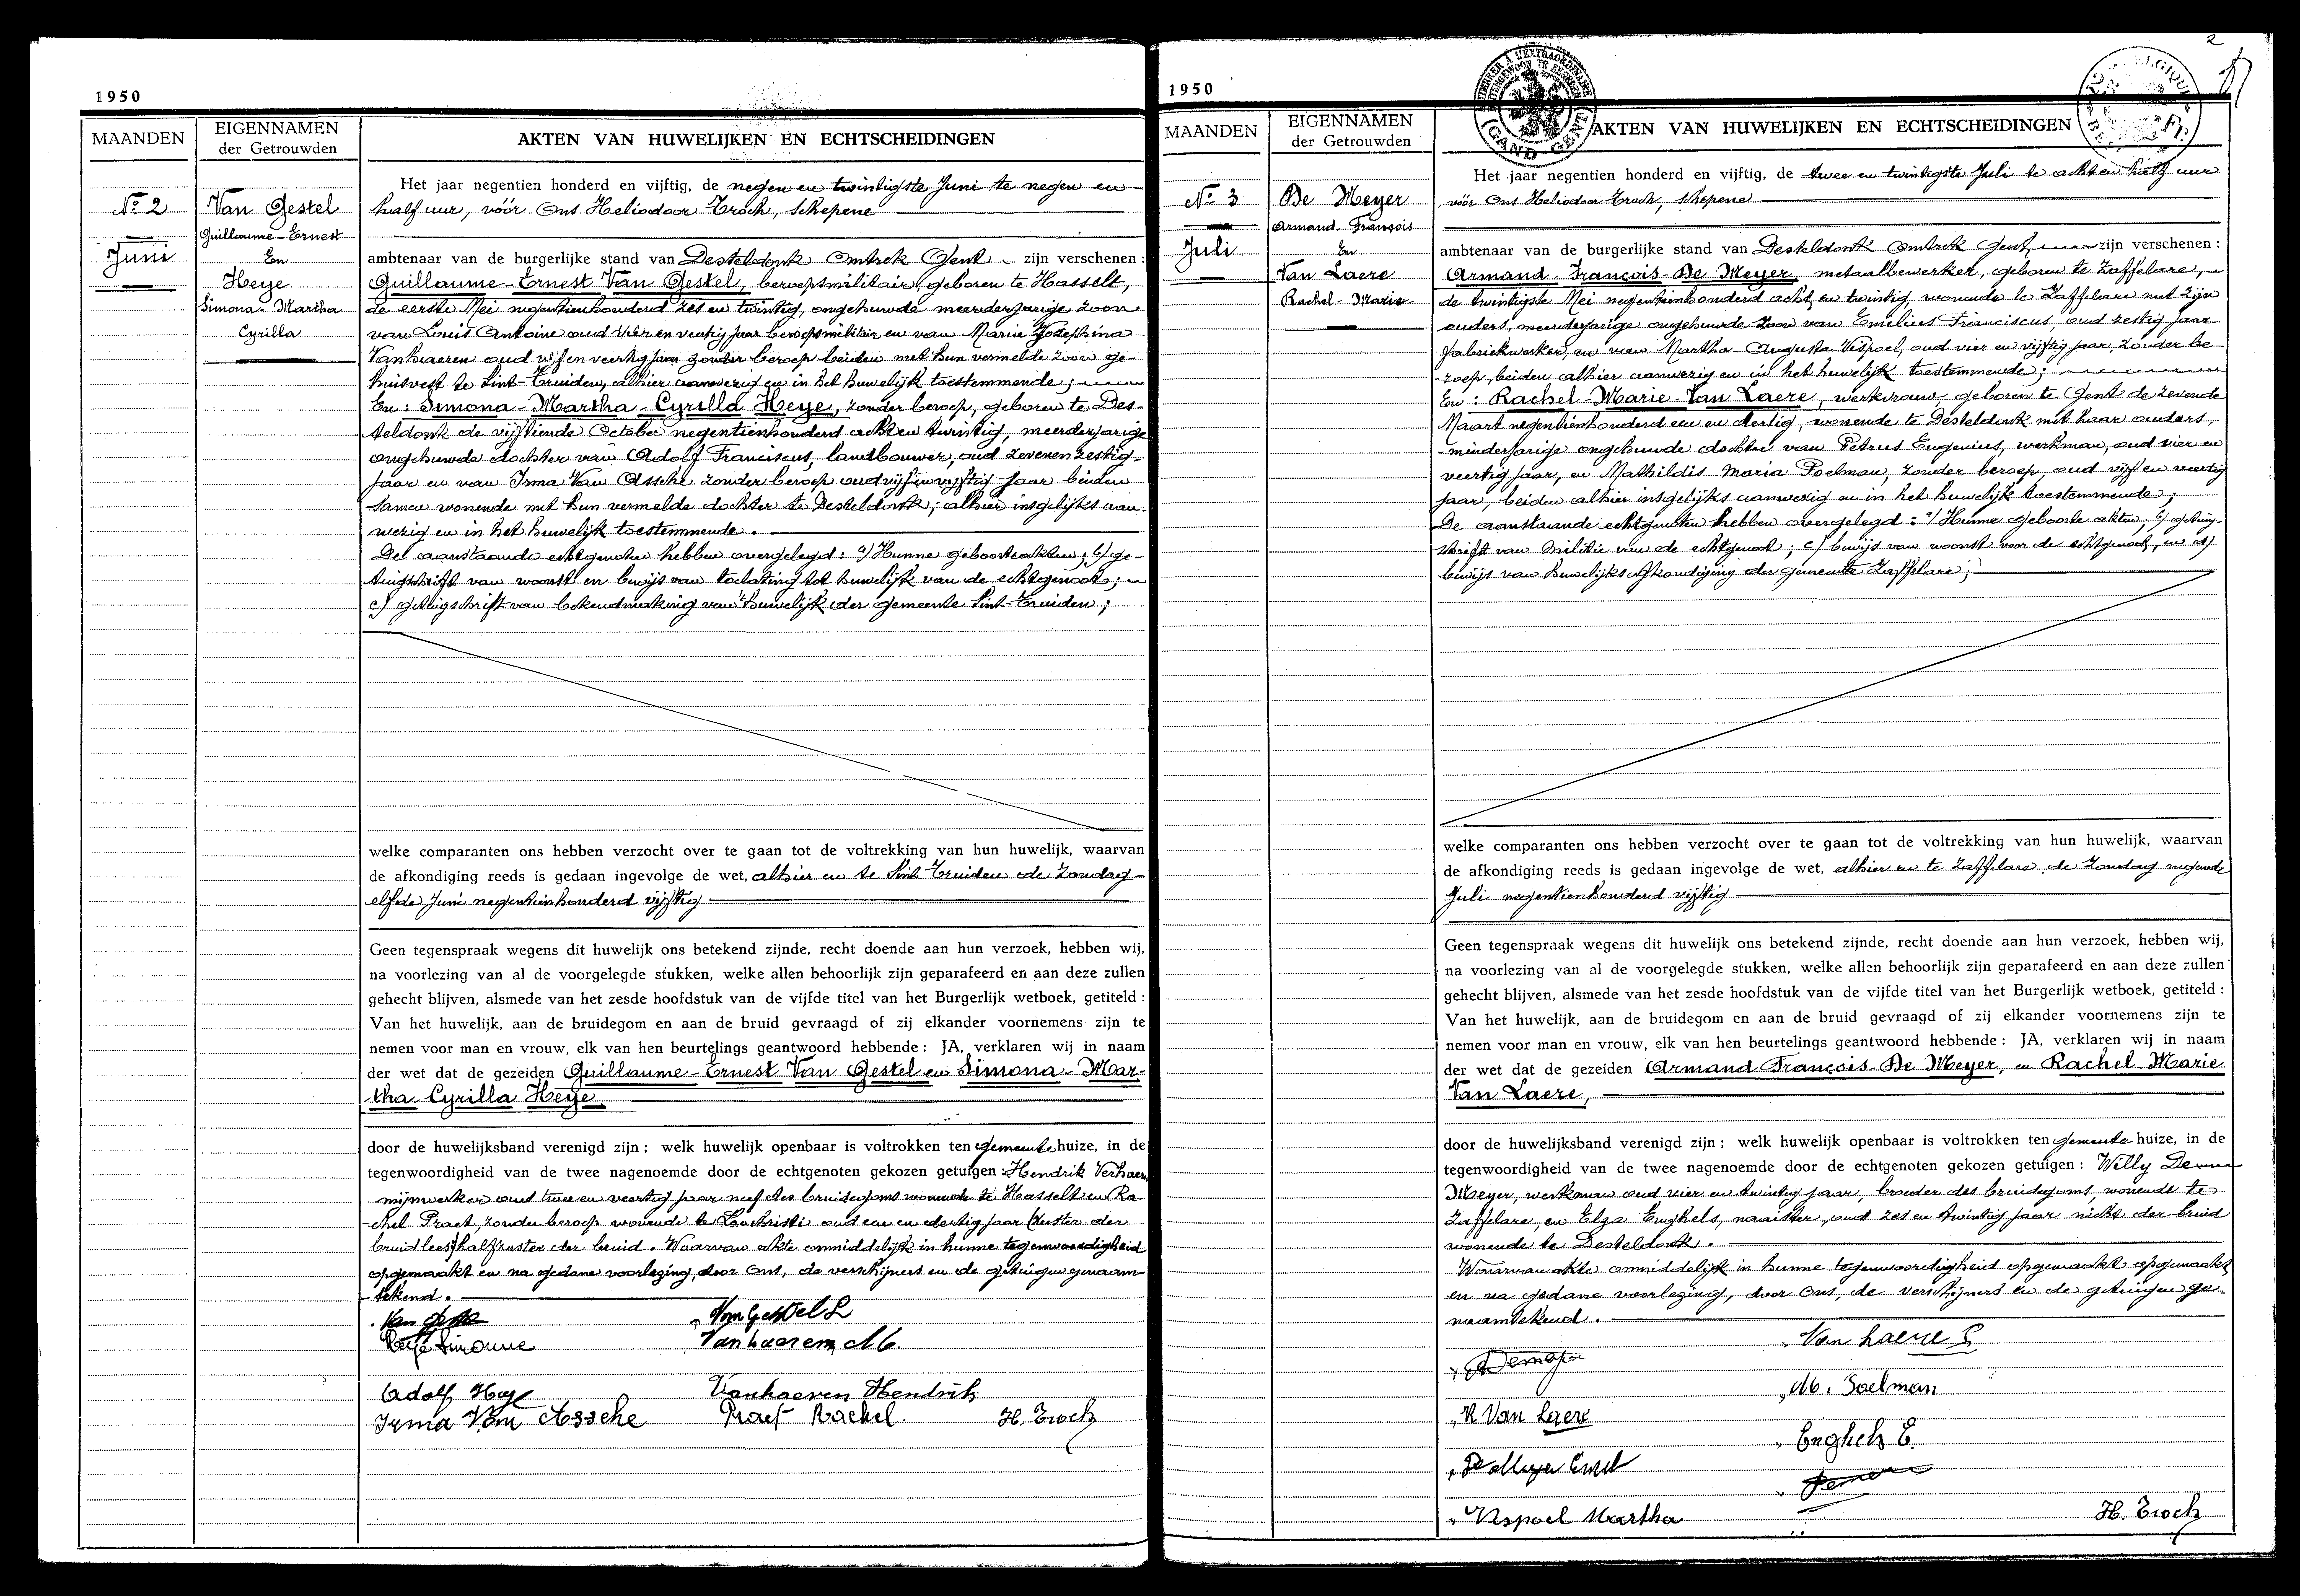 1950
MAANDEN
EIGENNAMEN
der Getrouwden
AKTEN VAN HUWELIJKEN EN ECHTSCHEIDINGEN
No 2
Juni
Van Gestel
Guillaume-Ernest
En
Heye
Simona-Martha
Cyrilla
Het jaar negentien honderd en vijftig, de negen en twintigste Juni te negen en
half uur, vóór Ons Heliodoor Troch, schepene
ambtenaar van de burgerlijke stand van Desteldonk Omtrek Gent zijn verschenen :
Guillaume-Ernest Van Gestel, beroepsmilitair, geboren te Hasselt,
de eerste Mei negentienhonderd zes en twintig, ongehuwde meerderjarige zoon
van Louis Antoine oud vier en veertig jaar beroepsmilitair en van Marie Josephina
Vanhaeren oud vijf en veertig jaar zonder beroep beiden met hun vermelde zoon ge-
huisvest te Sint-Truiden, alhier aanwezig en in het huwelijk toestemmende ;
En : Simona-Martha-Cyrilla Heye, zonder beroep, geboren te Des-
teldonk de vijftiende October negentienhonderd acht en twintig, meerderjarige
ongehuwde dochter van Adolf Franciscus, landbouwer, oud zevenenzestig
jaar en van Irma Van Assche zonder beroep oud vijfenvijftig jaar beiden
samen wonende met hun vermelde dochter te Desteldonk ; alhier insgelijks aan-
wezig en in het huwelijk toestemmende.
De aanstaande echtgenoten hebben overgelegd : a) Hunne geboorteakten ; b) ge-
tuigschrift van woonst en bewijs van toelating tot huwelijk van de echtgenoot ;
c) getuigschrift van bekendmaking van 't huwelijk der gemeente Sint-Truiden ;
welke comparanten ons hebben verzocht over te gaan tot de voltrekking van hun huwelijk, waarvan
de afkondiging reeds is gedaan ingevolge de wet, alhier en te Sint Truiden de Zondag
elfde Juni negentienhonderd vijftig
Geen tegenspraak wegens dit huwelijk ons betekend zijnde, recht doende aan hun verzoek, hebben wij,
na voorlezing van al de voorgelegde stukken, welke allen behoorlijk zijn geparafeerd en aan deze zullen
gehecht blijven, alsmede van het zesde hoofdstuk van de vijfde titel van het Burgerlijk wetboek, getiteld :
Van het huwelijk, aan de bruidegom en aan de bruid gevraagd of zij elkander voornemens zijn te
nemen voor man en vrouw, elk van hen beurtelings geantwoord hebbende : JA, verklaren wij in naam
der wet dat de gezeiden Guillaume-Ernest Van Gestel en Simona-Mar-
tha Cyrilla Heye
door de huwelijksband verenigd zijn ; welk huwelijk openbaar is voltrokken ten gemeente huize, in de
tegenwoordigheid van de twee nagenoemde door de echtgenoten gekozen getuigen : Hendrik
mijnwerker oud twee en veertig jaar neef des bruidegoms wonende te Hasselt en Ra-
chel Praet, zonder beroep wonende te Lochristi oud een en dertig jaar (zuster der
bruid lees) halfzuster der bruid. Waarvan akte onmiddelijk in hunne tegenwoordigheid
opgemaakt en na gedane voorlezing, door Ons, de verschijners en de getuigen genaam-
tekend.
Van Gestel L
Heye Simonne
Vanhaeren M.
Adolf Heye
Vanhaeren Hendrik
Irma Van Assche
Praet Rachel.
H. Troch
2
1950
TIMBRER À L'EXTRAORDINAIRE
BUITENGEWOON TE ZEGELEN
(GAND-GENT)
MAANDEN
EIGENNAMEN
der Getrouwden
AKTEN VAN HUWELIJKEN EN ECHTSCHEIDINGEN
No 3
Juli
De Meyer
Armand François
En
Van Laere
Rachel-Marie
Het jaar negentien honderd en vijftig, de twee en twintigste Juli te acht en half uur
vóór Ons Heliodoor Troch, schepene
ambtenaar van de burgerlijke stand van Desteldonk Omtrek Gent, zijn verschenen :
Armand François De Meyer, metaalbewerker, geboren te Zaffelare,
de twintigste Mei negentienhonderd acht en twintig, wonende te Zaffelare met zijn
ouders, meerderjarige ongehuwde zoon van Emilius Franciscus, oud zestig jaar
fabriekwerker, en van Martha Augusta Vispoel, oud vier en vijftig jaar, zonder be-
roep, beiden alhier aanwezig en in het huwelijk toestemmende ;
En : Rachel-Marie Van Laere, werkvrouw, geboren te Gent de zevende
Maart negentienhonderd een en dertig, wonende te Desteldonk met haar ouders,
minderjarige ongehuwde dochter van Petrus Eugenius, werkman, oud vier en
veertig jaar, en Mathildis Maria Poelman, zonder beroep, oud vijf en veertig
jaar, beiden alhier insgelijks aanwezig en in het huwelijk toestemmende ;
De aanstaande echtgenoten hebben overgelegd : a) Hunne geboorte akten, b) getuig-
schrift van militie van de echtgenoot ; c) bewijs van woonst voor de echtgenoot, en d)
bewijs van huwelijksafkondiging der gemeente Zaffelare ;
welke comparanten ons hebben verzocht over te gaan tot de voltrekking van hun huwelijk, waarvan
de afkondiging reeds is gedaan ingevolge de wet, alhier en te Zaffelare de Zondag negende
Juli negentienhonderd vijftig
Geen tegenspraak wegens dit huwelijk ons betekend zijnde, recht doende aan hun verzoek, hebben wij,
na voorlezing van al de voorgelegde stukken, welke allen behoorlijk zijn geparafeerd en aan deze zullen
gehecht blijven, alsmede van het zesde hoofdstuk van de vijfde titel van het Burgerlijk wetboek, getiteld :
Van het huwelijk, aan de bruidegom en aan de bruid gevraagd of zij elkander voornemens zijn te
nemen voor man en vrouw, elk van hen beurtelings geantwoord hebbende : JA, verklaren wij in naam
der wet dat de gezeiden Armand François De Meyer, en Rachel Marie
Van Laere,
door de huwelijksband verenigd zijn ; welk huwelijk openbaar is voltrokken ten gemeente huize, in de
tegenwoordigheid van de twee nagenoemde door de echtgenoten gekozen getuigen : Willy De
Meyer, werkman oud vier en twintig jaar, broeder des bruidegoms, wonende te
Zaffelare, en Elza Enghels, naaister, oud zes en twintig jaar nicht der bruid
wonende te Desteldonk.
Waarvan akte onmiddelijk in hunne tegenwoordigheid opgemaakt opgemaakt
en na gedane voorlezing, door Ons, de verschijners en de getuigen ge-
naamtekend.
Van Laere P
M. Poelman
R Van Laere
Enghels E.
De Meyer Emiel
Vispoel Martha
H. Troch